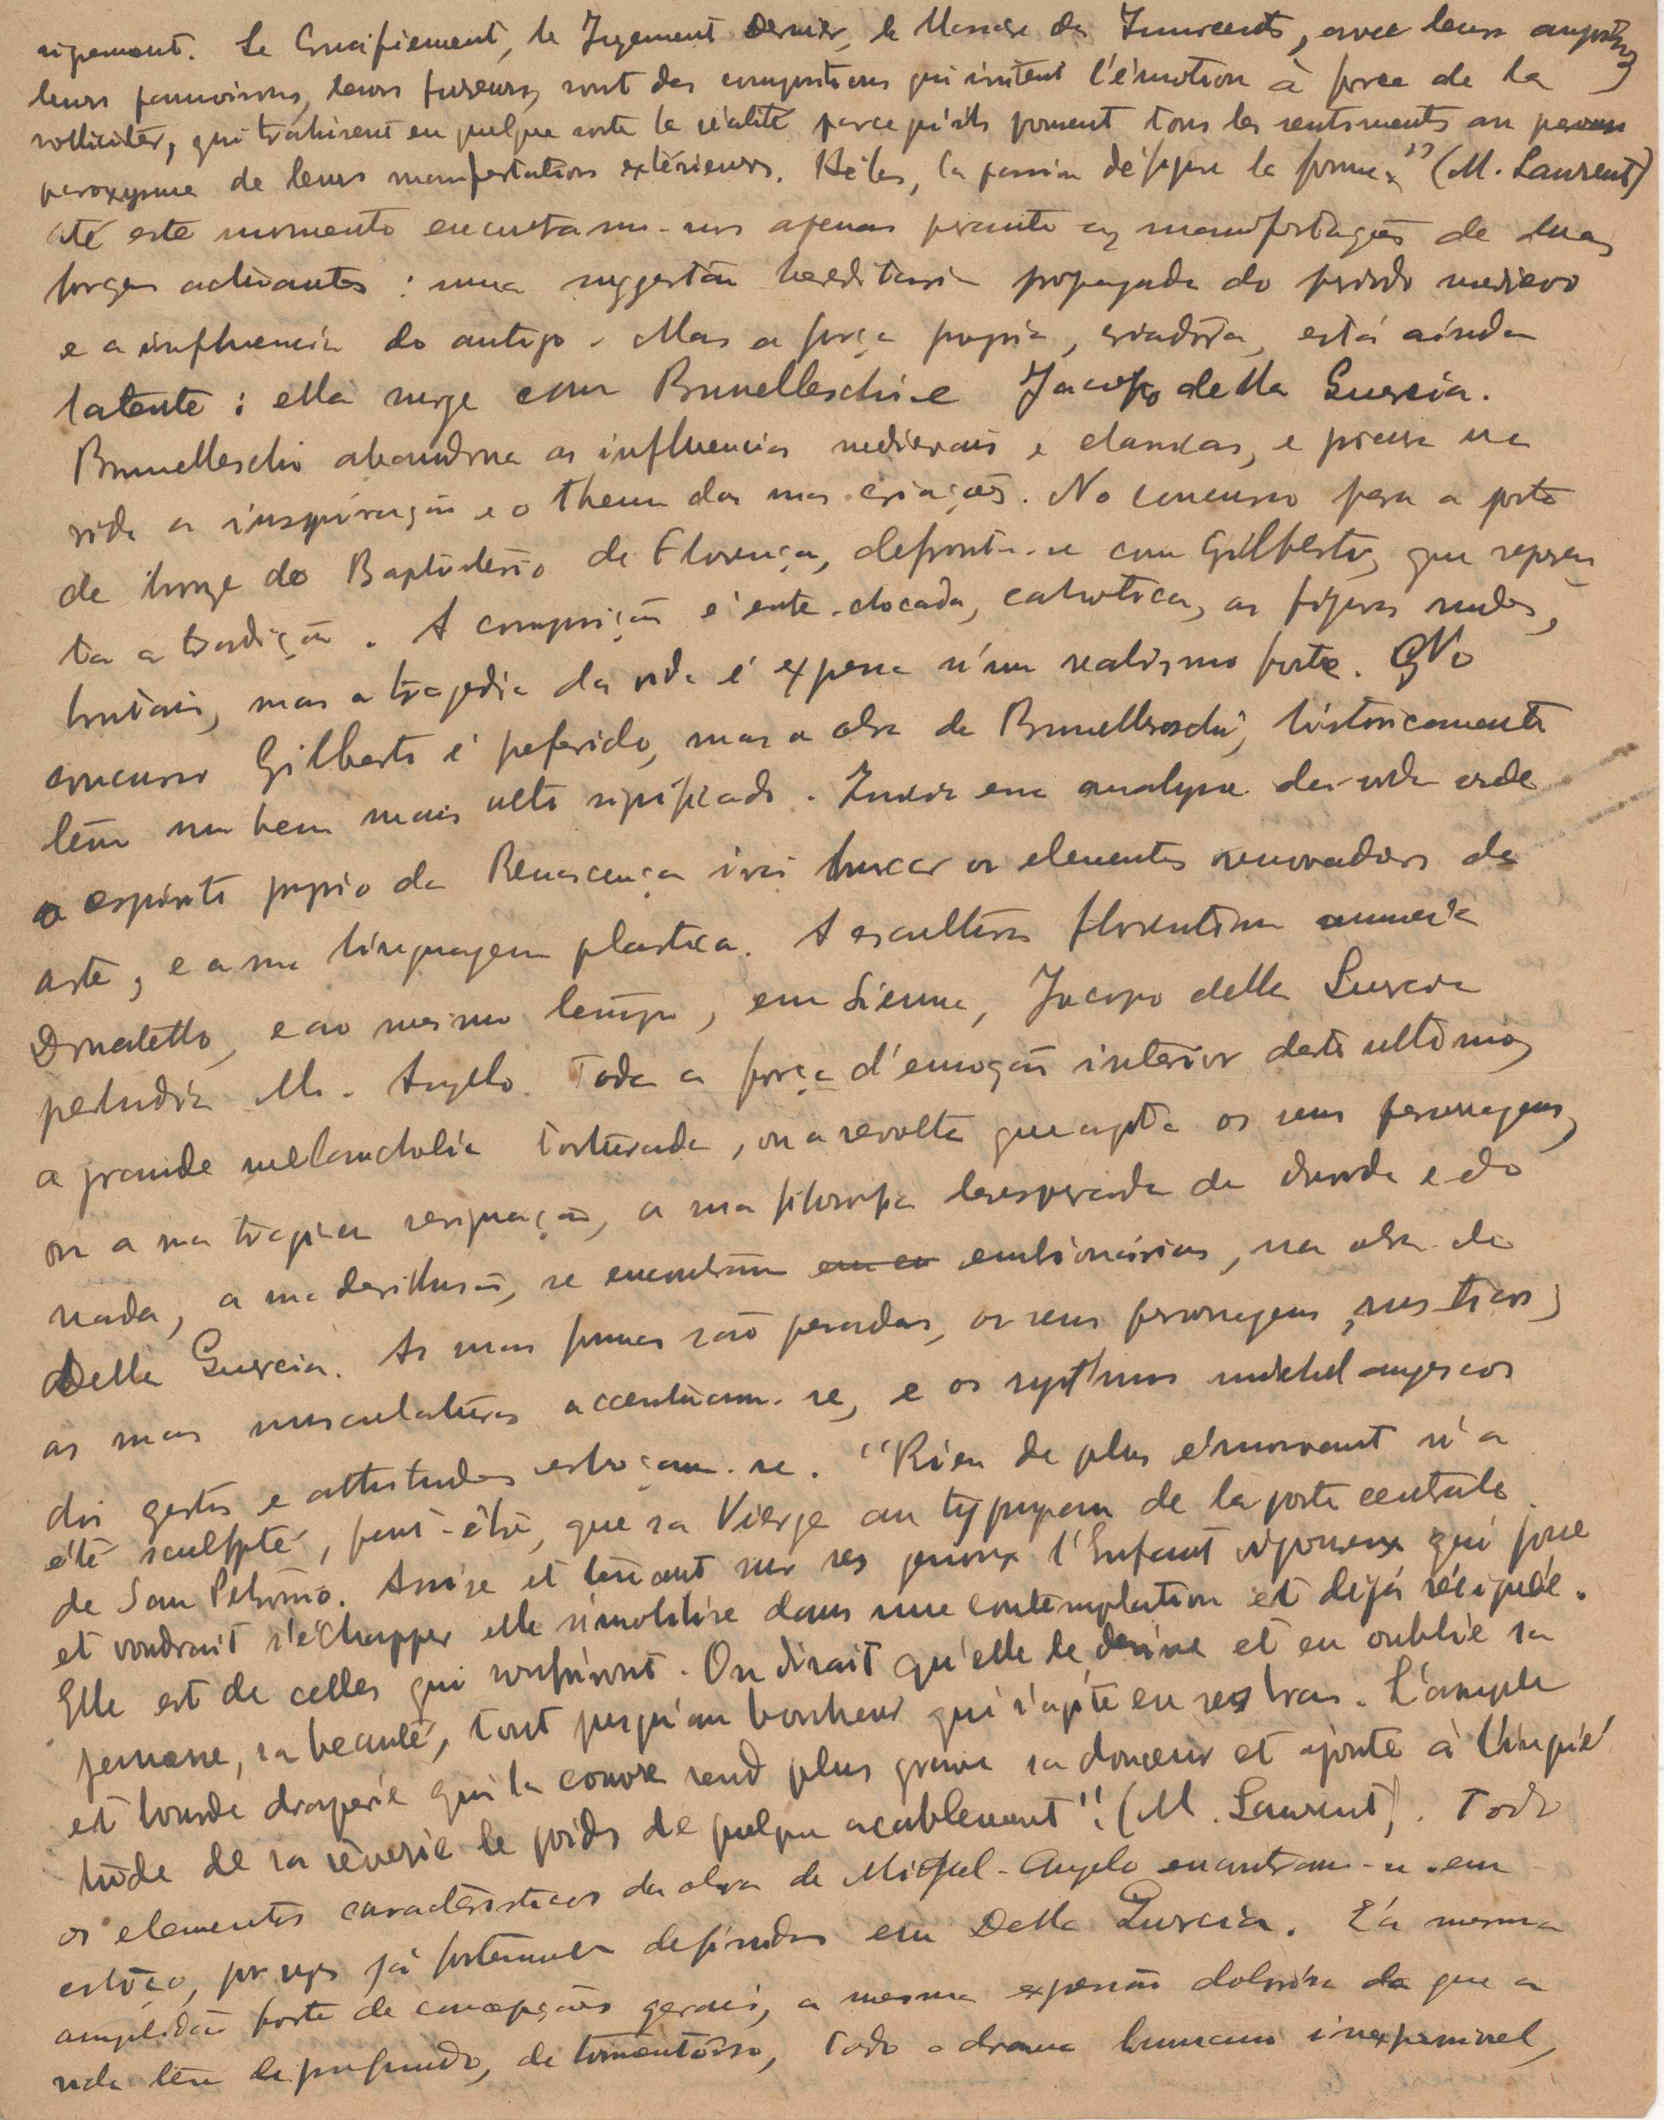 Le Crucifiement, le Jugement Dernier, le Massacre des Innocents, avec leurs
leurs pamoisons, leurs fureurs, sont des compositions qui irritent l'émotion à force de la
solliciter, qui trahissent en quelque sorte la réalité parce qu'ils poussent tous les sentiments au
paroxysme de leurs manifestations extérieurs. Hélas, la passion défigure la forme." (M. Laurent)
até este momento encontramo-nos apenas perante as manifestações de duas
forças actuantes : uma suggestão hereditaria propagada do periodo medievo
e a influencia do antigo. Mas a força propria, criadora, está ainda
latente : ella surge com Brunelleschi e Jacopo della Guercia.
Brunelleschi abandona as influencias medievais e classicas, e procura na
vida a inspiração e o thema das suas criações. No concurso para a porta
de bronze do Baptisterio de Florença, defronta-se com Gilberto, que represen
ta a tradição. A composição é entre-chocada, cahotica, as figuras rudes,
brutais, mas a tragedia da vida é expressa n'um realismo forte. No
concurso Gilberto é preferido, mas a obra de Brunelleschi, historicamente
tem um bem mais alto significado. Será na analyse da vida onde
o espirito proprio da Renascença irá buscar os elementos renovadores da
arte, e a sua linguagem plastica. A escultura florentina anuncia
Donatello, e ao mesmo tempo, em Sienna, Jacopo della Guercia
preludia M. Angelo. Toda a força d'emoção interior deste ultimo,
a grande melancholia torturada, ou a revolta que agita os seus personagens,
ou a sua tragica resignação, a sua filosofia desesperada da duvida e do
nada, a sua desillusão, se encontram embrionárias, na obra de
Della Guercia. As suas formas são pesadas, os seus personagens,
as suas musculaturas accentuam-se, e os rythmos michelangescos
dos gestos e attitudes esboçam-se. "Rien de plus émouvant n'a
été sculpté, peut-être, que sa Vierge au tympan de la porte centrale
de San Petronio. Assise et tenant sur ses genoux l'Enfant vigoureux qui joue
et voudrait s'échapper elle s'immobilise dans une contemplation et déjà résignée.
Elle est de celles qui souffriront. On dirait qu'elle le devine et en oublie sa
jeunesse, sa beauté, tout jusqu'au bonheur qui s'agite en ses bras. L'ample
et lourde draperie qui la couvre rend plus grave sa douceur et ajoute à l'inquié
tude de sa rêverie le poids de quelque acablement". (M. Laurent). Todos
os elementos caracteristicos da obra de Miguel-Angelo encontram-se em
esboço, por vezes já fortemente definidos em Della Guercia. É a mesma
amplidão forte de concepções gerais, a mesma expressão dolorosa do que a
vida tem de profundo, de tormentoso, todo o drama humano inexprimivel,